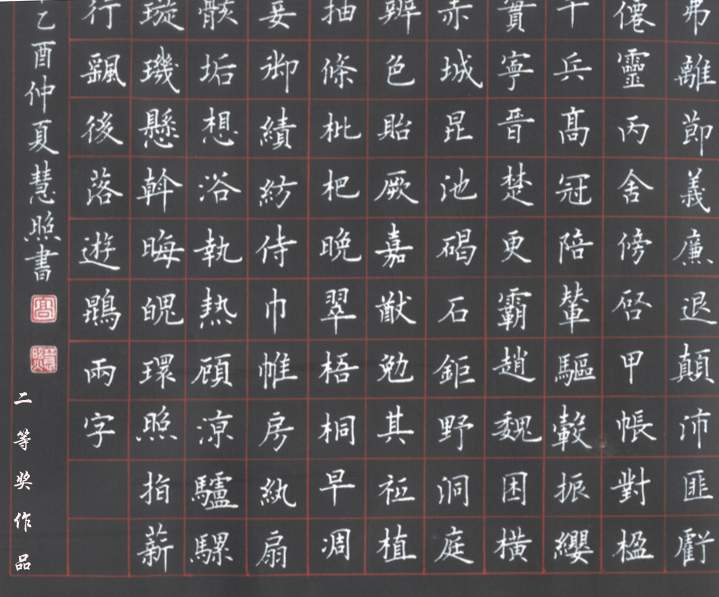 弗離節義廉退顛沛匪虧
僊靈丙舍傍启甲帳對楹
千兵髙冠陪輦驅轂振纓
實寧晉楚更霸趙魏困橫
赤城昆池碣石鉅野洞庭
辨色貽厥嘉猷勉其祗植
抽條枇杷晚翠梧桐早凋
妾御績紡侍巾帷房紈扇
骸垢想浴執熱願凉驢騾
璇璣懸斡晦魄環照指薪
行飄後落遊鵾兩字
乙酉仲夏慧照書
二等奖作品